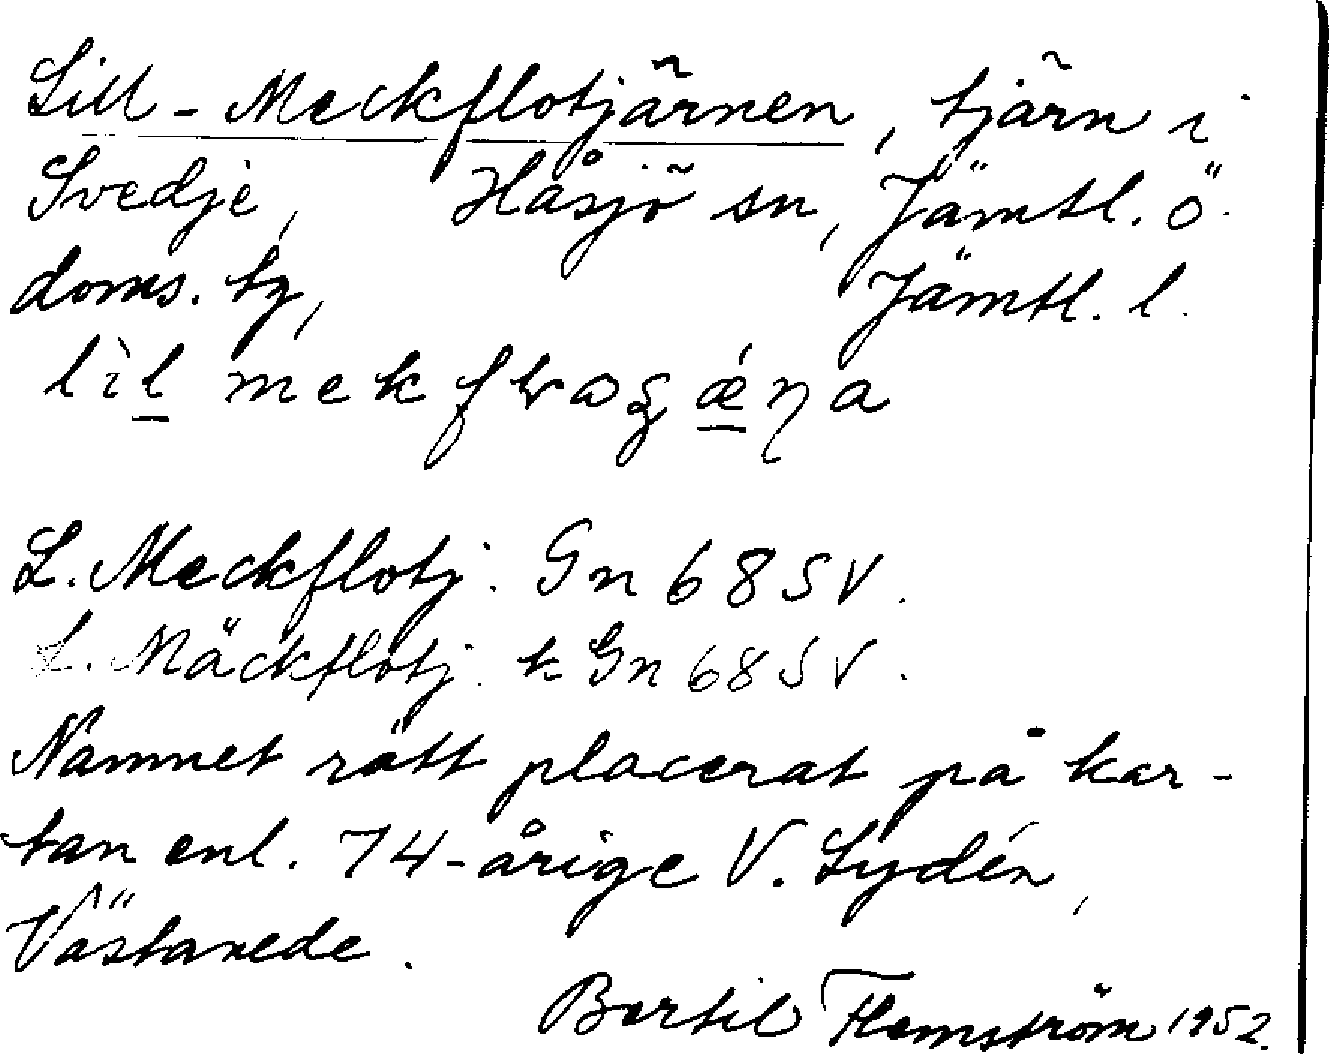 Lill-Meckflotjärnen, tjärn i
Svedje, Håsjö sn, Jämtl. ö.
doms. tg, Jämtl. l.
L. Meckflotj. Gn 68 SV.
L. Mäckflotj. k Gn 68 SV.
Namnet rätt placerat på kar-
tan enl. 74-årige V. Lydén,
Västanede.
Bertil Flemström 1952.